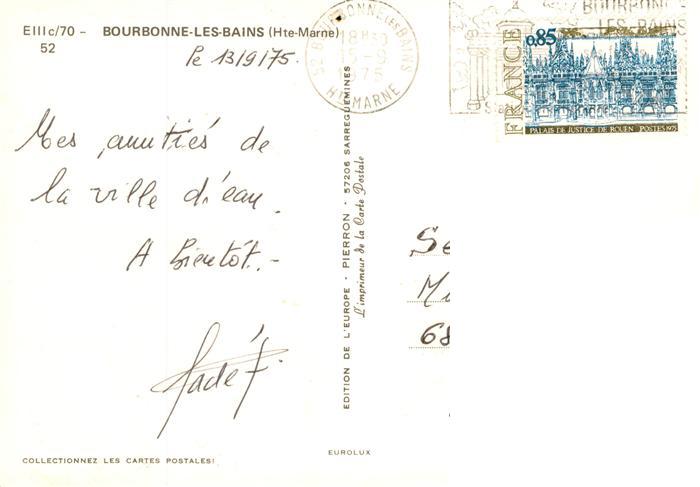 EIIIc/70 - BOURBONNE-LES-BAINS (Hte-Marne)
52
Le 13/9/75.
Mes amitiés de
la ville d'eau.
A bientôt.-
COLLECTIONNEZ LES CARTES POSTALES!
EUROLUX
EDITION DE L'EUROPE - PIERRON - 57206 SARREGUEMINES
L'imprimeur de la Carte Postale
52 BOURBONNE LES BAINS
18H30
1975
HTE MARNE
BOURBONNE
LES BAINS
0,85
FRANCE
PALAIS DE JUSTICE DE ROUEN POSTES 1975
Se
Mu
68